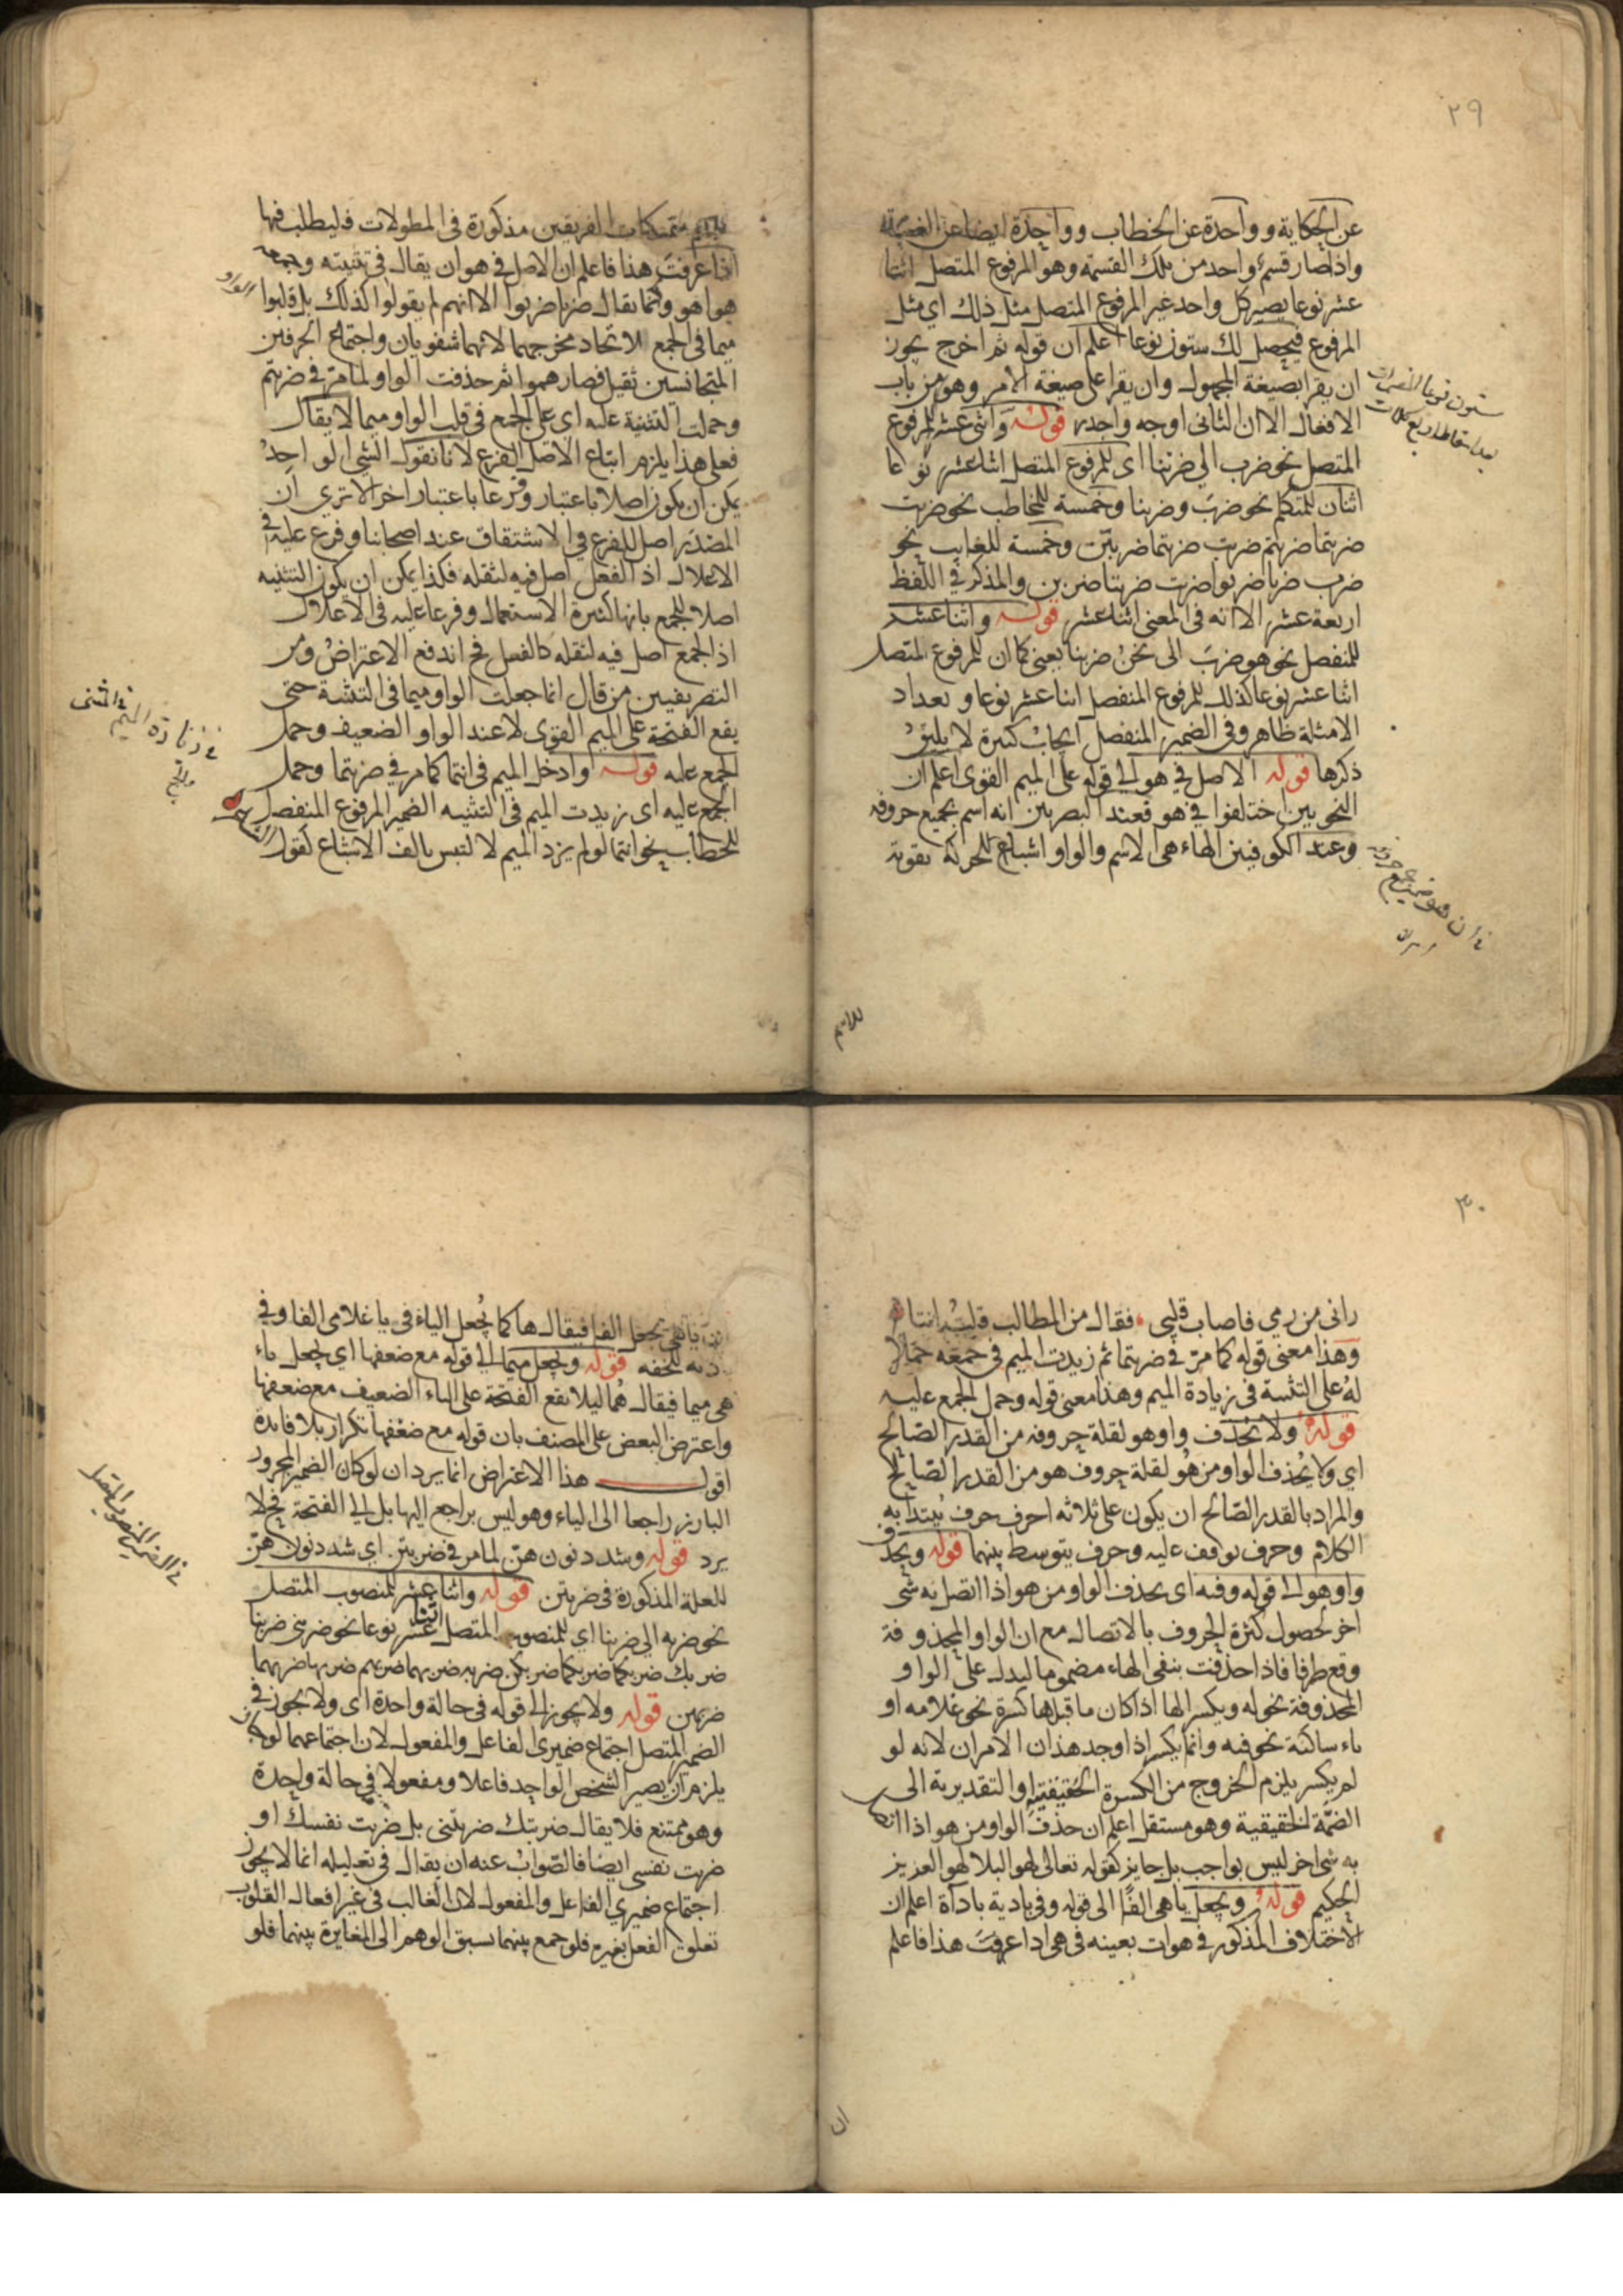 ٢٩
عن الحكاية وواحدة عن الخطاب وواحدة ايضا عن الغيبة
واذا صار قسم واحد من تلك القسمة وهو المرفوع المتصل اثنا
عشر نوعا يصير كل واحد غير المرفوع المتصل مثل ذلك اي مثل
المرفوع فيحصل لك ستون نوعا اعلم ان قوله ثم اخرج يجوز
ان يقرا بصيغة المجهول وان يقرا على صيغة الامر وهو من باب
الافعال الا ان الثاني اوجه واجدر قوله واثنى عشر للمرفوع
المتصل نحو ضرب الى ضربنا اى للمرفوع المتصل اثنا عشر نوعا
اثنان للمتكلم نحو ضربت وضربنا وخمسة للمخاطب نحو ضربت
ضربتما ضربتم ضربت ضربتما ضربتن وخمسة للغايب نحو
ضرب ضربا ضربوا ضربت ضربتا ضربن والمذكر في اللفظ
اربعة عشر الا انه في المعنى اثنا عشر قوله واثنا عشر
للمنفصل نحو هو ضرب الى نحن ضربنا يعنى كما ان للمرفوع المتصل
اثنا عشر نوعا كذلك للمرفوع المنفصل اثنا عشر نوعا و تعداد
الامثلة ظاهر وفى الضمير المنفصل ابحاث كثيرة لا يليق
ذكرها قوله الاصل في هو الي قوله على الميم القوى اعلم ان
النحويين اختلفوا في هو فعند البصريين انه اسم بجميع حروفه
وعند الكوفيين الهاء هى الاسم والواو اشباع للحركة تقوية
ستون نوعا
للاسم
متمسكات الفريقين مذكورة فى المطولات فليطلب فيها
اذا عرفت هذا فاعلم ان الاصل في هو ان يقال فى تثنيته وجمعه
هوا هو و كما يقال ضربا ضربوا الا انهم لم يقولوا كذلك بل قلبوا الواو
ميما فى الجمع لاتحاد مخرجهما لانهما شفويان واجتماع الحرفين
المتجانسين ثقيل فصار همموا ثم حذفت الواو لما مر في ضربتم
وحملت التثنية عليه اي على الجمع فى قلب الواو ميما لا يقال
فعلى هذا يلزم اتباع الاصل للفرع لانا نقول الشئ الواحد
يمكن ان يكون اصلا باعتبار وفرعا باعتبار اخر الا ترى ان
المصدر اصل للفرع في الاشتقاق عند اصحابنا وفرع عليه في
الاعلال اذ الفعل اصل فيه لثقله فكذا يمكن ان يكون التثنيه
اصلا للجمع بانها كثيرة الاستعمال وفرعا عليه فى الاعلال
اذ الجمع اصل فيه لثقله كالفعل فح اندفع الاعتراض ومن
التصريفيين من قال انما جعلت الواو ميما فى التثنية حتى
يقع الفتحة على الميم القوى لا عند الواو الضعيف وحمل
الجمع عليه قوله وادخل الميم فى انتما كما مر في ضربتما وحمل
الجمع عليه اى زيدت الميم فى التثنيه الضمير المرفوع المنفصل
للخطاب نحو انتما لو لم يزد الميم لالتبس بالف الاشباع لقول الشاعر
٣٠
رانى من رمي فاصاب قلبى فقال من المطالب قلت انتا
وهذا معنى قوله كما مر في ضربتما ثم زيدت الميم في جمعه حملا
له على التثنية فى زيادة الميم وهذا معنى قوله وحمل الجمع عليه
قوله ولا تحذف واو هو لقلة حروفه من القدر الصالح
اي ولا يحذف الواو من هو لقلة حروف هو من القدر الصالح
والمراد بالقدر الصالح ان يكون على ثلاثه احرف حرف يبتدأ به
الكلام وحرف توقف عليه وحرف يتوسط بينهما قوله ويحذف
واو هو الى قوله وفيه اى يحذف الواو من هو اذا اتصل به شئ
اخر لحصول كثرة الحروف بالاتصال مع ان الواو المحذوفة
وقع طرفا فاذا حذفت بنفى الهاء مضموما ليدل على الواو
المحذوفة نحو له ويكسر الها اذا كان ما قبلها كسرة نحو غلامه او
ياء ساكنة نحو فيه وانما يكسر اذا وجد هذان الامران لانه لو
لم يكسر يلزم الخروج من الكسرة الحقيقية او التقديرية الى
الضمة الحقيقية وهو مستقل اعلم ان حذف الواو من هو اذا اتصل
به شئ اخر ليس بواجب بل جايز كقوله تعالى لهو البلا لهو العزيز
الحكيم قوله ويجعل يا هي الفا الى قوله وفى بادية باداة اعلم ان
الاختلاف المذكور في هو ات بعينه فى هى اذا عرفت هذا فاعلم
ان
ان يا هى تجعل الفا فيقال ها كما يجعل الياء فى يا غلامى الفا وفي
للخفه قوله ويجعل ميما الى قوله مع ضعفها اي يجعل ياء
هى ميما فيقال هما ليلا يقع الفتحة على الياء الضعيف مع ضعفها
واعترض البعض على المصنف بان قوله مع ضعفها تكرار بلا فائدة
اقول هذا الاعتراض انما يرد ان لو كان الضمير المجرور
البارز راجعا الى الياء وهو ليس براجع اليها بل الي الفتحة فح لا
يرد قوله وشدد نون هن لما مر في ضربتن اي شدد نون هن
للعلة المذكورة فى ضربتن قوله واثنا عشر للمنصوب المتصل
نحو ضربه الي ضربنا اي للمنصوب المتصل اثنا عشر نوعا نحو ضربني ضربنا
ضربك ضربكما ضربكم ضربكن ضربه ضربهما ضربهم ضربها ضربهما
ضربهن قوله ولا يجوز الى قوله فى حالة واحدة اى ولا يجوز في
الضمير المتصل اجتماع ضميرى الفاعل والمفعول لان اجتماعهما لو كان
يلزم ان يصير الشخص الواحد فاعلا ومفعولا في حالة واحدة
وهو ممتنع فلا يقال ضربتك ضربتنى بل ضربت نفسك او
ضربت نفسى ايضا فالصواب عنه ان يقال فى تعليله انما لا يجوز
اجتماع ضميري الفاعل والمفعول لان الغالب فى غير افعال القلوب
تعلق الفعل بغيره فلو جمع بينهما سبق الوهم الى المغايرة بينهما فلو
فى الضمير المنصوب المتصل